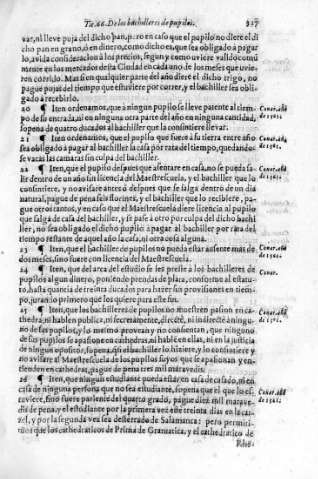 Tit. 66. De los bachilleres de pupilos. 327
var, ni lleve puja del dicho pan, p. ro en caso que el pupilo no diere el di
cho pan en grano, o en dinero, como dicho es, que sea obligado a pagar
lo, avida consideracion a los precios, segun y como uviere valido comũ
mente en los mercados desta Ciudad en cada uno de los meses que uvie
ron corrido. Mas si en qualquier parte del año diere el dicho trigo, no
pague pujas del tiempo que estuviere por correr, y el bachiller sea obli
gado a recebirlo.
20 ¶ Iten ordenamos, que a ningun pupilo se lleve patente al tiem-
po de su entrada, ni en ninguna otra parte del año en ninguna cantidad,
so pena de quatro ducados al bachiller que la consintiere llevar.
21 ¶ Iten ordenamos, que el pupilo que fuere a su tierra entre año
sea obligado a pagar al bachiller la casa por rata del tiempo, quedando-
se vacas las camaras sin culpa del bachiller.
22 ¶ Iten, que el pupilo despues que asentare en casa, no se pueda sa-
lir dentro de un año sin licencia del Maestrescuela, y el bachiller que lo
consintiere, y no avisare antes ò despues que se salga dentro de un dia
natural, pague de pena seis florines, y el bachiller que lo recibiere, pa-
gue otros tantos, y en caso que el Maestrescuela diere licencia al pupilo
que salga de casa del bachiller, y se pase à otro por culpa del dicho bachi
ller, no sea obligado el dicho pupilo à pagar al bachiller por rata del
tiempo restante de aquel año la casa, ni otra cosa alguna.
23 ¶ Iten, que el bachiller de pupilos no pueda estar ausente mas de
dos meses, sino fuere con licencia del Maestrescuela.
24 ¶ Iten, que del arca del estudio se les preste a los bachilleres de
pupilos algun dinero, poniendo prendas de plata, conforme al estatu-
to, hasta quantia de treinta ducados para hazer sus provisiones en tiem-
po, jurando primero que los quiere para este fin.
25 ¶ Iten, que los bachilleres de pupilos no muestren pasion en ca-
thedra, ni hablen publica, ni secretamente, directè, ni indirectè à ningu-
no de sus pupilos, y lo mismo provean y no consientan, que ninguno
de sus pupilos se apasione en cathedras, ni hable en ellas, ni en la justicia
de ningun opositor, so pena, que si el bachiller lo hiziere, y lo consintiere y
no avisare al Maestrescuela de los pupilos suyos que se apasionan y en-
tienden en cathedras, pague de pena tres mil maravedis.
26 ¶ Iten, que ningun estudiante pueda estar en casa de casado, ni en
casa de ninguna persona que no sea estudiante, so pena que el que lo es-
tuviere, sino fuere pariente del quarto grado, pague diez mil marave-
dis de pena, y el estudiante por la primera vez este treinta dias en la car-
cel, y por la segunda vez sea desterrado de Salamanca: pero permiti-
mos que los cathedraticos de Prima de Gramatica, y el cathedratico de